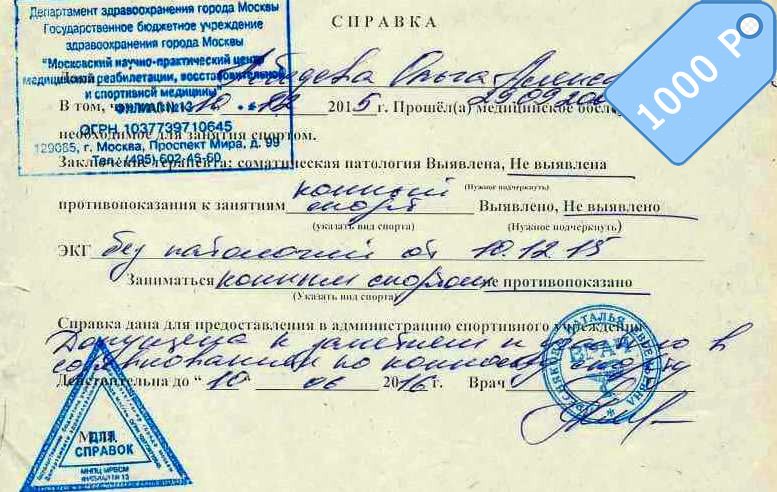 Департамент здравоохранения города Москвы
Государственное бюджетное учреждение
здравоохранения города Москвы
"Московский научно-практический центр
медицинской реабилитации, восстановительной
и спортивной медицины"
ФИЛИАЛ №13
ОГРН 1037739710645
129085, г. Москва, Проспект Мира, д. 99
Тел.: (495) 602-45-60
СПРАВКА
1000 Р
Ольга
В том, 10 12 2015г. Прошёл(а) медицинское
необходимое для занятия спортом.
Заключение терапевта: соматическая патология Выявлена, Не выявлена
(Нужное подчеркнуть)
противопоказания к занятиям конный спорт Выявлено, Не выявлено
(указать вид спорта) (Нужное подчеркнуть)
ЭКГ без патологий от 10.12.15
Заниматься конным спортом не противопоказано
(Указать вид спорта)
Справка дана для предоставления в администрацию спортивного учреждения
Допущена к занятиям и участию в
соревнованиях по конному спорту
Действительна до "10" 06 2016г. Врач
ВРАЧ
НАТАЛЬЯ
М.П.
ДЛЯ
СПРАВОК
МНПЦ МРВСМ
ФИЛИАЛ № 13